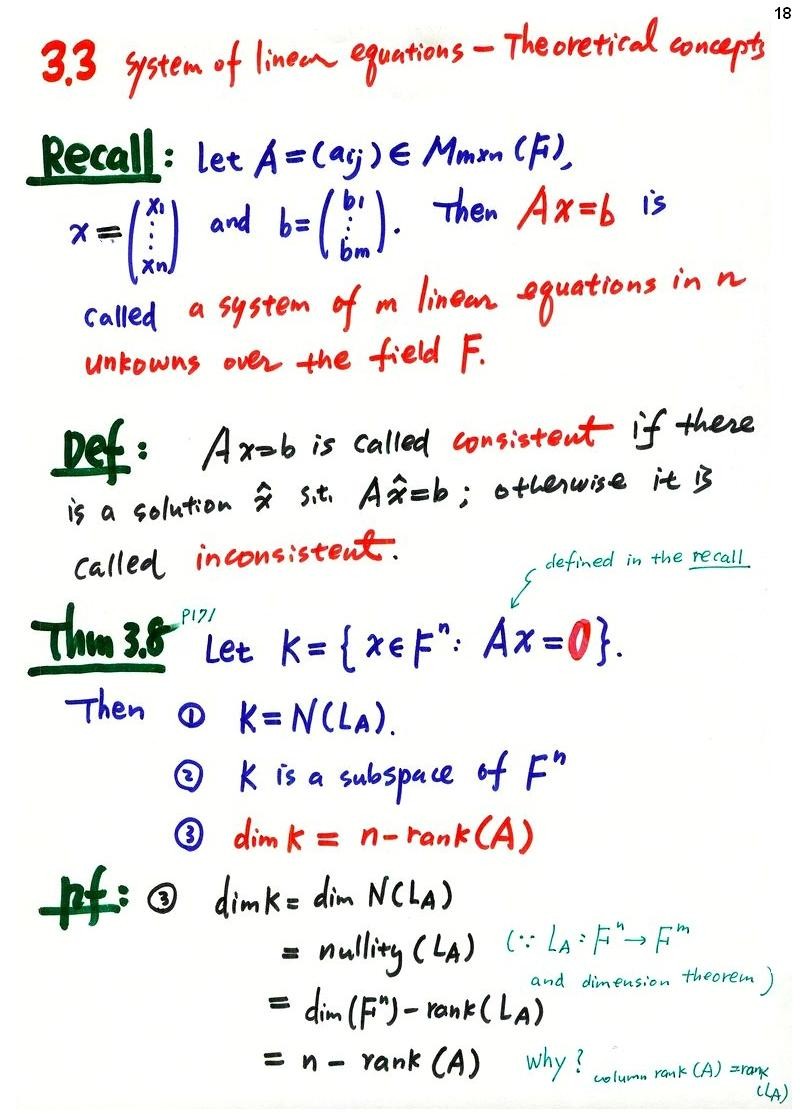 18
3.3 System of linear equations – Theoretical concepts
Recall: Let A = (aij) ∈ Mmxn (F),
x = (x1 ⋮ xn) and b = (b1 ⋮ bm). Then Ax=b is
called a system of m linear equations in n
unkowns over the field F.
Def: Ax=b is called consistent if there
is a solution x̂ s.t. Ax̂=b ; otherwise it is
called inconsistent.
defined in the recall
Thm 3.8 P171 Let K = { x∈Fⁿ: Ax = 0 }.
Then ① K = N(LA).
② K is a subspace of Fⁿ
③ dim K = n-rank(A)
pf: ③ dim K = dim N(LA)
= nullity (LA) (∵ LA : Fⁿ → Fᵐ
and dimension theorem )
= dim(Fⁿ) - rank(LA)
= n - rank (A) why? column rank (A) = rank
(LA)